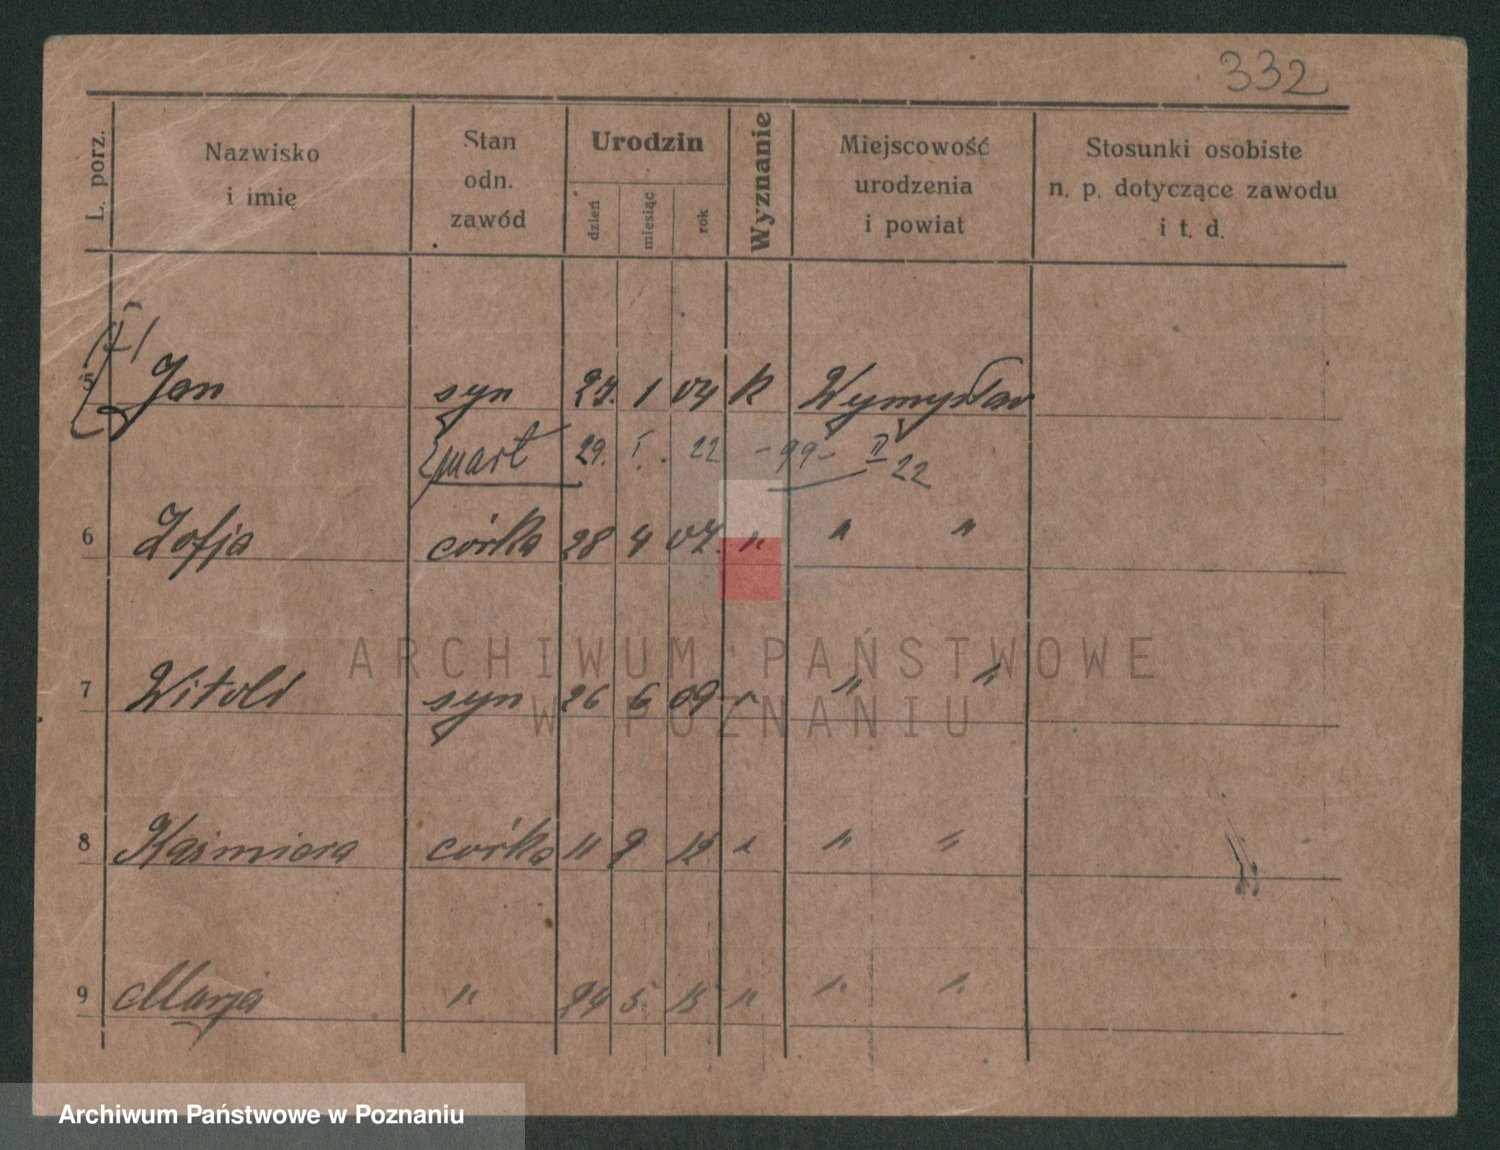 332
L. porz.
Nazwisko
i imię
Stan
odn.
zawód
Urodzin
dzień
miesiąc
rok
Wyznanie
Miejscowość
urodzenia
i powiat
Stosunki osobiste
n. p. dotyczące zawodu
i t. d.
5 Jan syn 27. 1 04 k Wymysław
29. I. 22 -99- II 22
6 Zofja córka 28 4 07. " " "
7 Witold syn 26 6 09 " " "
8 Kaźmiera córka 11 9 12 " " "
9 Marja " 24 5. 15 " " "
ARCHIWUM PAŃSTWOWE
W POZNANIU
Archiwum Państwowe w Poznaniu